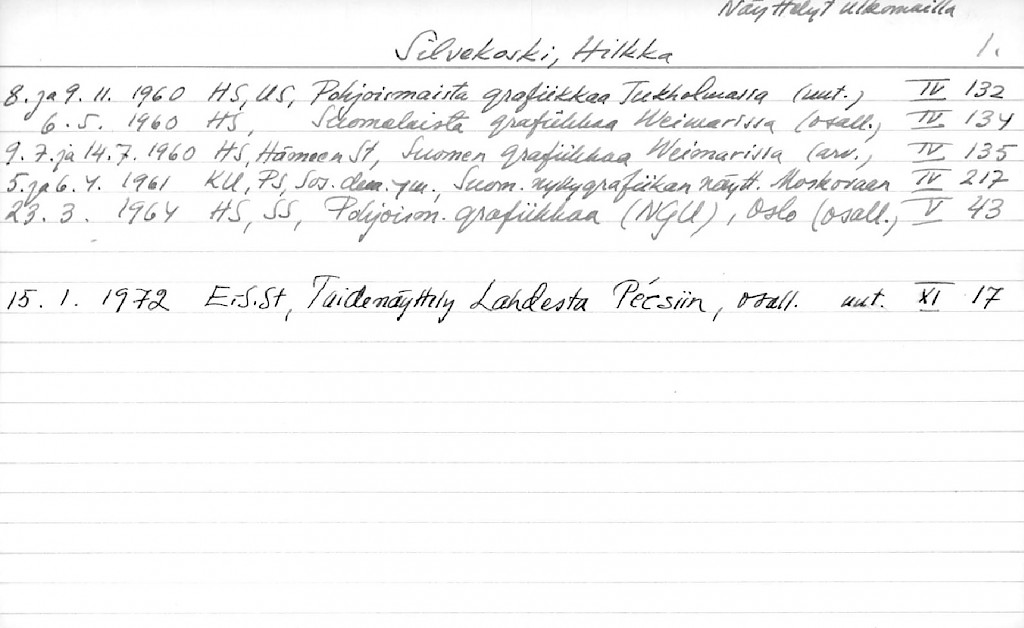 Näyttelyt ulkomailla
Silvekoski, Hilkka 1.
8. ja 9. 11. 1960 HS, US, Pohjoismaista grafiikkaa Tukholmassa (uut.) IV 132
6. 5. 1960 HS, Suomalaista grafiikkaa Weimarissa (osall.) IV 134
9. 7. ja 14. 7. 1960 HS, Hämeen St, Suomen grafiikkaa Weimarissa (arv.) IV 135
5. ja 6. 4. 1961 KU, PS, Sos.dem. ym., Suom. nykygrafiikan näytt. Moskovaan IV 217
23. 3. 1964 HS, SS, Pohjoism. grafiikkaa (NGU), Oslo (osall.) V 43
15. 1. 1972 E.S.St, Taidenäyttely Lahdesta Pécsiin, osall. uut. XI 17